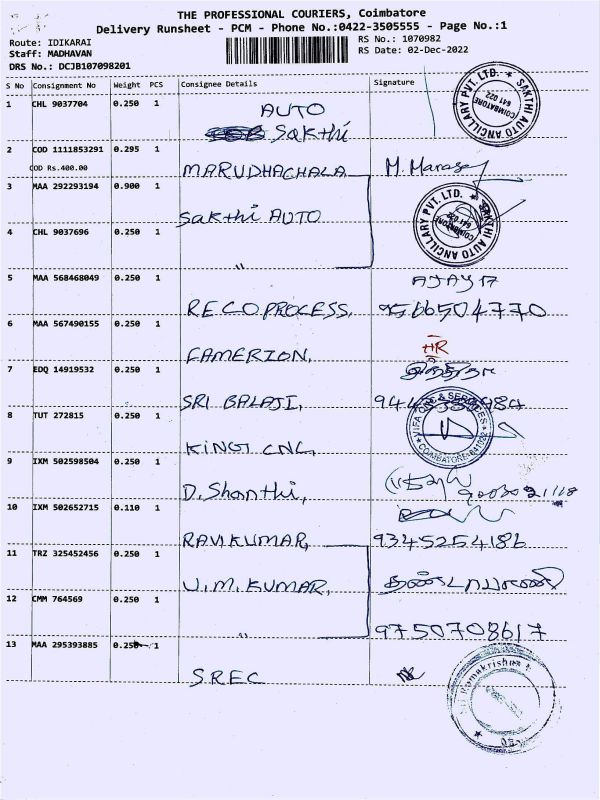 THE PROFESSIONAL COURIERS, Coimbatore
Delivery Runsheet - PCM - Phone No.:0422-3505555 - Page No.:1
Route: IDIKARAI
RS No.: 1070982
Staff: MADHAVAN
RS Date: 02-Dec-2022
DRS No.: DCJB107098201
S No Consignment No Weight PCS Consignee Details Signature
1 CHL 9037704 0.250 1
AUTO
Sakthi
SAKTHI AUTO ANCILLARY PVT. LTD.
COIMBATORE
641 022
2 COD 1111853291 0.295 1
COD Rs.400.00
MARUDHACHALA
3 MAA 292293194 0.900 1
Sakthi AUTO
SAKTHI AUTO ANCILLARY PVT. LTD.
COIMBATORE
4 CHL 9037696 0.250 1
"
5 MAA 568468049 0.250 1
AJAY 17
RECOPROCESS, 9566504770
6 MAA 567490155 0.250 1
HR
FAMERION,
7 EDQ 14919532 0.250 1
SRI BALAJI,
8 TUT 272815 0.250 1
& SERVICES
COIMBATORE-641022
KINGT CNC,
9 IXM 502598504 0.250 1
D. Shanthi,
10 IXM 502652715 0.110 1
RAVIKUMAR,
11 TRZ 325452456 0.250 1
U.M. KUMAR,
12 CMM 764569 0.250 1
" 9750708617
13 MAA 295393885 0.250 1
S.REC
Ramakrishna